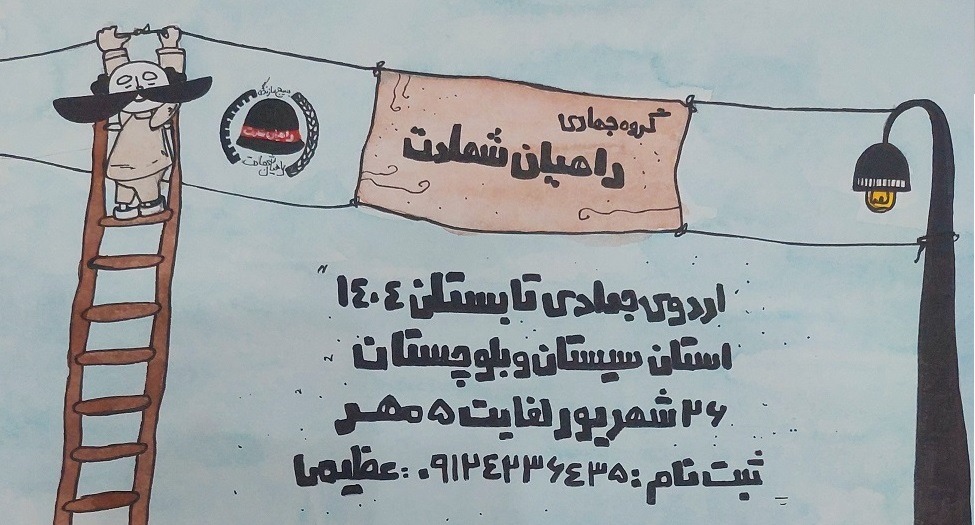 گروه جهادی
راهیان شهادت
بسیج سازندگی
راهیان شهادت
راهیان شهادت
اردوی جهادی تابستان ۱۴۰۴
استان سیستان و بلوچستان
۲۶ شهریور لغایت ۵ مهر
ثبت نام: ۰۹۱۲۴۲۳۶۴۳۵: عظیمی